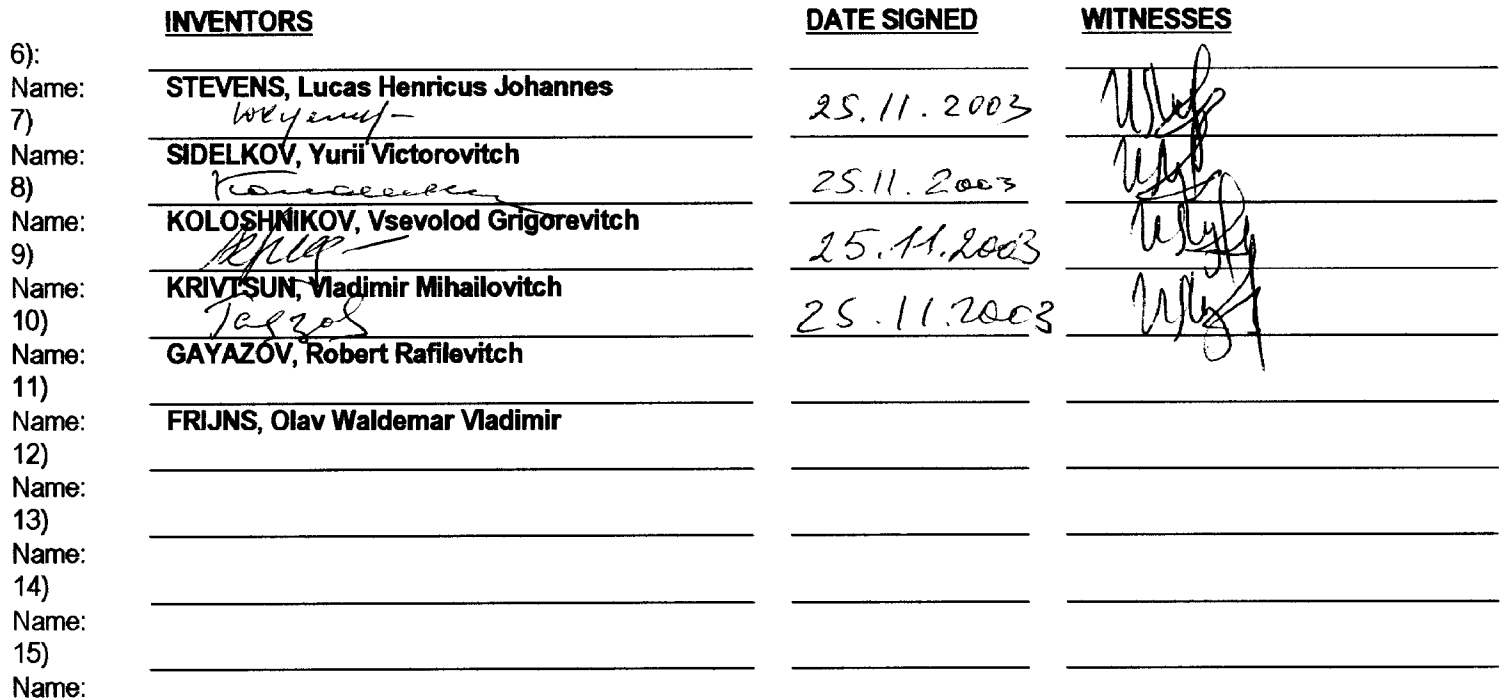 INVENTORS DATE SIGNED WITNESSES
6):
Name: STEVENS, Lucas Henricus Johannes
7) 25.11.2003
Name: SIDELKOV, Yurii Victorovitch
8) 25.11.2003
Name: KOLOSHNIKOV, Vsevolod Grigorevitch
9) 25.11.2003
Name: KRIVTSUN, Vladimir Mihailovitch
10) 25.11.2003
Name: GAYAZOV, Robert Rafilevitch
11)
Name: FRIJNS, Olav Waldemar Vladimir
12)
Name:
13)
Name:
14)
Name:
15)
Name: